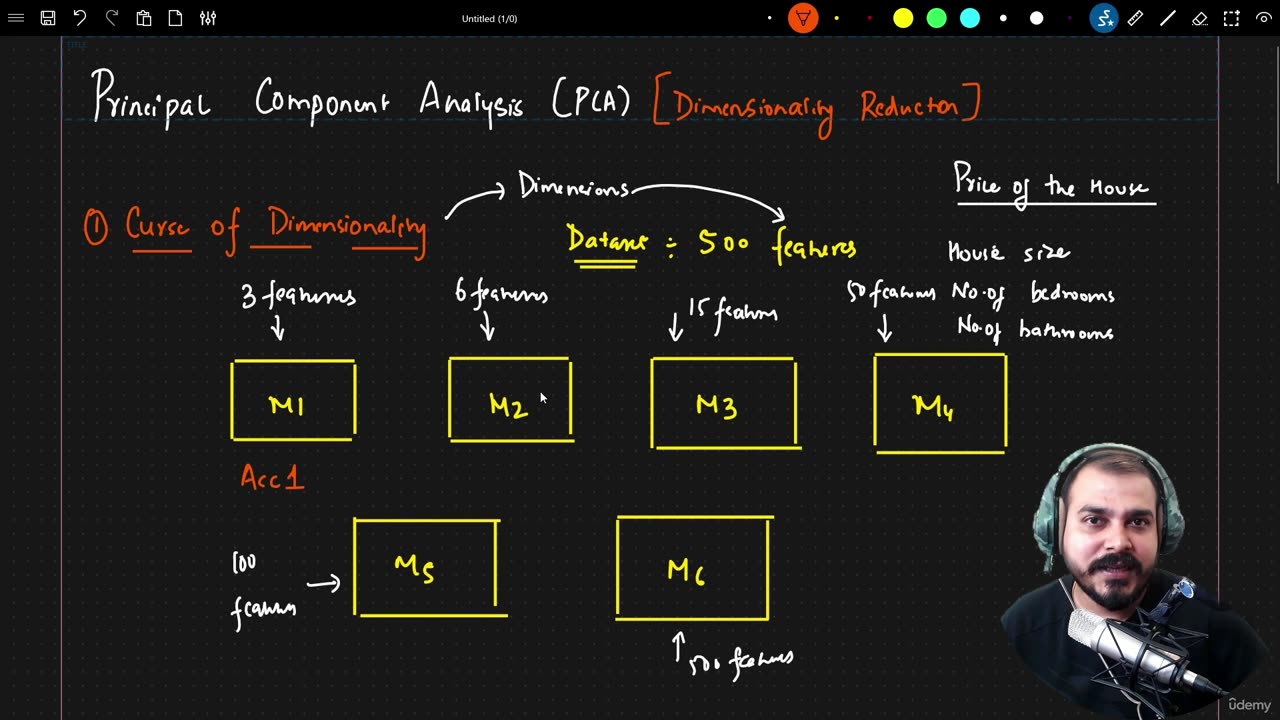 Untitled (1/0)
Principal Component Analysis (PCA) [Dimensionality Reduction]
Dimensions
Price of the House
① Curse of Dimensionality
Dataset ÷ 500 features
House size
3 features
6 features
15 features
50 features
No. of bedrooms
No. of bathrooms
M1
M2
M3
M4
Acc1
100
features
M5
M6
500 features
ûdemy